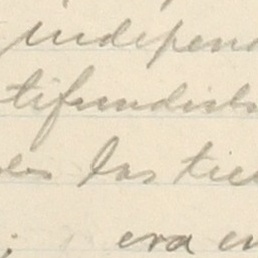 independ
tifundist
las tie
; era en